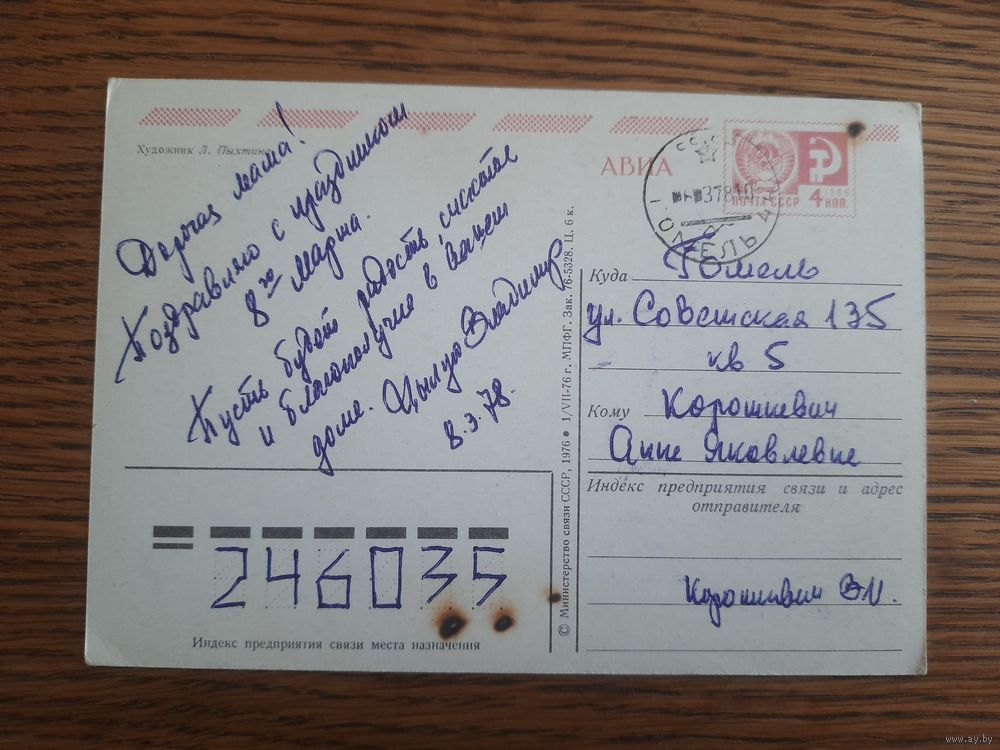 Художник Л. Пыхтина
Дорогая мама!
Поздравляю с праздником
8го Марта.
Пусть будет радость, счастье
и благополучие в вашем
доме. Целую Владимир
8.3.78.
АВИА
ПОЧТА СССР
1966
4 КОП.
ГОМЕЛЬ
Куда Гомель
ул. Советская 135
кв 5
Кому Корошкевич
Анне Яковлевне
Индекс предприятия связи и адрес
отправителя
Корошкевич В.И.
246035
Индекс предприятия связи места назначения
© Министерство связи СССР, 1976 • 1/VII-76 г. МПФГ. Зак. 76-5328. Ц. 6 к.
www.ay.by